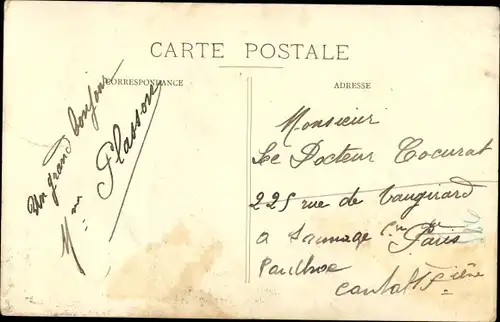 CARTE POSTALE
CORRESPONDANCE
Un grand bonjour
Mme Plasson
ADRESSE
Monsieur
Le Docteur Cocurat
225 rue de Vaugirard
a Sauvage
Paris
Paulhac
Cantal